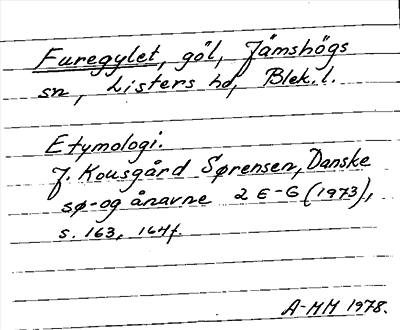 Furegylet, göl, Jämshögs
sn, Listers hd, Blek. l.
Etymologi.
J. Kousgård Sørensen, Danske
sø- og ånavne 2 E-G (1973),
s. 163, 164f.
A-MM 1978.